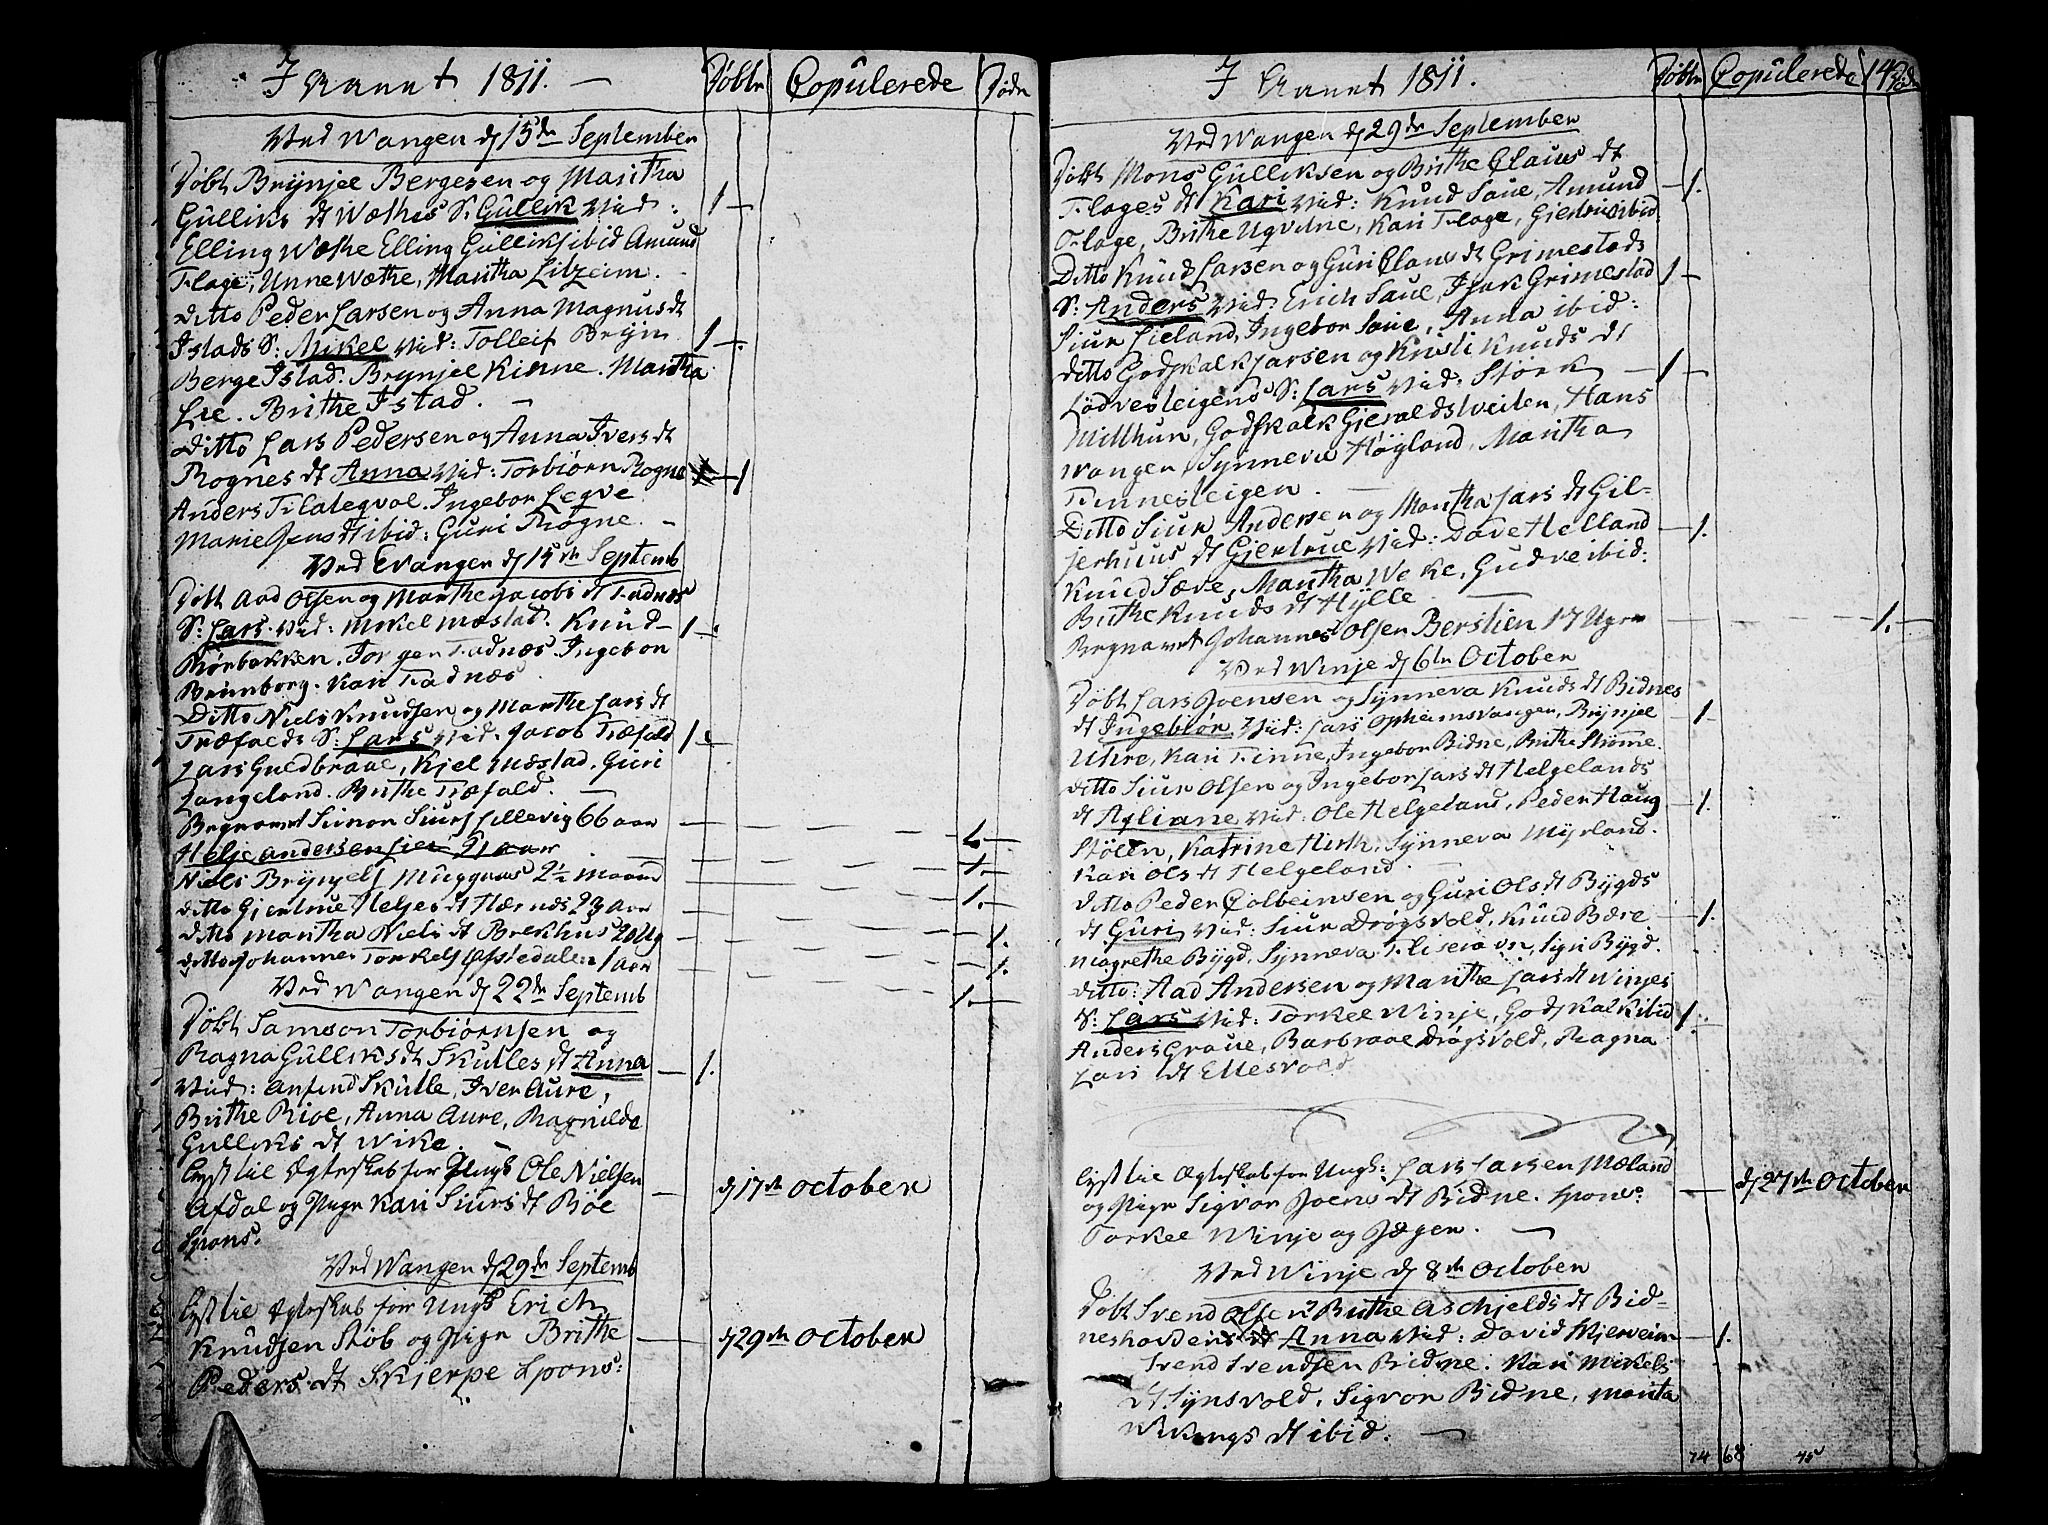 I Aaret 1811. — Døbte Copulerede Døde
Ved Wangen d 15de September
Døbt Brynjel Bergesen og Maritha
Gulliks dt Wæthes S: Gullik Vid: 1 —
Elling Wæthe Elling Gulliks ibid Amund
Flage, Unne Wæthe, Maritha Litzeim.
Ditto Peder Larsen og Anna Magnus dt
Istads S: Mikel Vid: Tolleif Bryn 1 —
Berge Istad. Brynjel Kinne. Maritha
Lie. Brithe Istad. —
Ditto Lars Pedersen og Anna Ivers dt
Rognes dt Anna Vid: Torbiørn Rogne 1
Anders Flatequal. Ingebor Leqve
Marie Jens dt ibid: Guri Rogne. —
Ved Evangen d 15de Septemb
Døbt Aad Olsen og Marthe Jacobs dt Fadnæs
S: Lars. Vid: Mikel Mæstad. Knud 1 —
Rørbakken. Jørgen Fadnæs. Ingebor
Brunborg. Kari Fadnæs.
Ditto Niels Knudsen og Marthe Lars dt
Træfalds S: Lars Vid: Jacob Træfald 1 —
Lars Guldbraae, Kjel Mæstad. Guri
Langeland. Brithe Træfald. —
Begravet Simon Siurs Lillevig 66 aar — 1 —
Helje Andersen 91 aar — 1 —
Niels Brynjels Muggaas 2½ maaned — 1 —
ditto Gjertrue Heljes dt Hærnes 23 aar — 1.
ditto Maritha Niels dt Brekhus 20 Ug — 1.
ditto Johannes Torkels Øfstedalen 1 aar — 1. —
Ved Wangen d 22de Septemb
Døbt Samson Torbiørnsen og
Ragna Gulliks dt Skulles dt Anna — 1.
Vid: Anfind Skulle, Iver Aure,
Brithe Rioe, Anna Aure, Ragnilde
Gulliks dt Wike. —
Lyst til Ægteskab for Ungk Ole Nielsen
Afdal og Pige Kari Siurs dt Bøe — d 17de October
Spons.
Ved Wangen d 29de Septemb
Lyst til Ægteskab for Ungk Erich
Knudsen Støb og Pige Brithe — d 29de October
Peders dt Skjerpe Spons:
I Aaret 1811. Døbte Copulerede Døde 14
Ved Wangen d 29de September
Døbt Mons Gulliksen og Brithe Claus dt
Flages dt Kari Vid: Knud Saue, Amund — 1.
Flage, Brithe Ugvelne, Kari Flage, Gjertrue ibid.
Ditto Knud Larsen og Guri Claus dt Grimestads
S: Anders Vid Erich Saue, Isak Grimestad 1 —
Siur Lieland, Ingebor Saue, Anna ibid:
ditto Godskalk Larsen og Kristi Knuds dt
Lødvesteigens S: Lars Vid: Størk — 1 —
Millhun, Godskalk Gjeraldstveiten, Hans
Wangen, Synneva Høgland, Maritha
Finnesteigen. —
Ditto Siur Andersen og Maritha Lars dt Gil-
jerhuus dt Gjertrue Vid: Dave Helland — 1.
Knud Sæve, Maritha Weke, Gudve ibid:
Brithe Knuds dt Hylle. —
Begravet Johannes Olsen Berstien 17 Uger — 1. —
Ved Winje d 6te October
Døbt Lars Joensen og Synneva Knuds dt Bidnes
dt Ingebiør Vid: Lars Opheimsvangen, Brynjel — 1 —
Uhre, Kari Finne, Ingebor Bidne, Brithe Strømme.
ditto Siur Olsen og Ingebor Lars dt Helgelands
dt Agliane Vid: Ole Helgeland, Peder Haug — 1.
Støeln, Katrine Hirth, Synneva Myrland.
Kari Ols dt Helgeland. —
ditto Peder Colbeinsen og Guri Ols dt Bygds
dt Guri Vid: Siur Drøgsvold, Knud Bære — 1.
Magrethe Bygd, Synneva, Signi Bygd.
Ditto: Aad Andersen og Marithe Lars dt Winjes
S: Lars Vid: Torkel Winje, Godskalk ibid 1.
Anders Graue, Barbraae Drøgsvold, Ragna
Lars dt Ellesvold
Lyst til Ægteskab for Ungk: Lars Larsen Mæland
og Pige Sigvor Joens dt Bidne. Spons: — d 27de October
Torkel Winje og Jægen. —
Ved Winje d 8de October
Døbt Svend Olsen Brithe Aschjelds dt Bid-
neshovdens dt Anna Vid: David Hierveim — 1.
Svend Svendsen Bidne. Kari Mikels
dt Synsvold, Sigvor Bidne, Marita
Vikings dt ibid. —
74 68 45